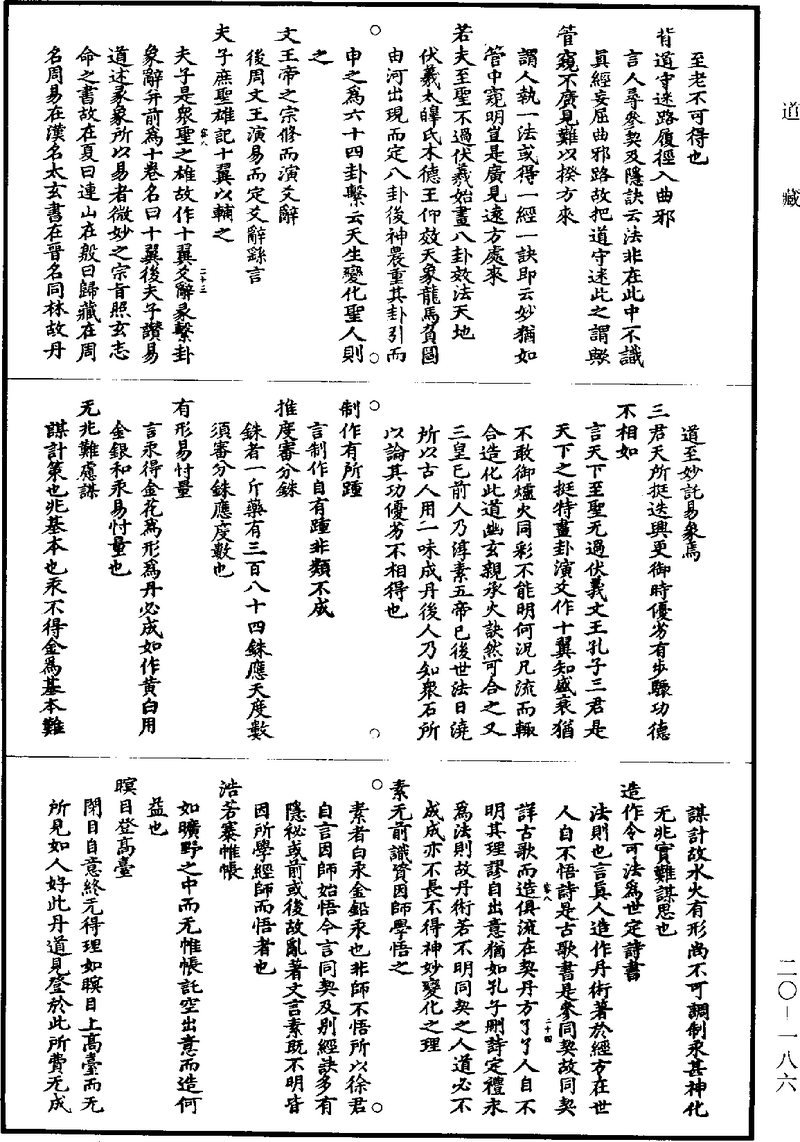 道藏
至老不可得也
背道守迷路履徑入曲邪
言人尋參契及隱訣云法非在此中不識
真經妄屈曲邪路故把道守迷此之謂歟
管窺不廣見難以揆方來
謂人執一法或得一經一訣即云妙猶如
管中窺明豈是廣見遠方處來
若夫至聖不過伏羲始畫八卦效法天地
伏羲太皥氏木德王仰效天象龍馬負圖
由河出現而定八卦後神農重其卦引而
申之為六十四卦繫云天生變化聖人則
之
文王帝之宗修而演爻辭
後周文王演易而定爻辭繇言
夫子庶聖雄記十翼以輔之
夫子是衆聖之雄故作十翼爻辭彖繫卦
卷八
二十三
象辭弁前為十卷名曰十翼後夫子讚易
道述彖象所以易者微妙之宗旨照玄志
命之書故在夏曰連山在殷曰歸藏在周
名周易在漢名太玄書在晉名同林故丹
道至妙託易象焉
三君天所挺迭興更御時優劣有步驟功德
不相如
言天下至聖无過伏羲文王孔子三君是
天下之挺特畫卦演爻作十翼知盛衰猶
不敢御爐火同彩不能明何況凡流而輙
合造化此道幽玄親承火訣然可合之又
三皇已前人乃淳素五帝已後世法日澆
所以古人用一味成丹後人乃知衆石所
以論其功優劣不相得也
制作有所踵
言制作自有踵非類不成
推度審分銖
銖者一斤藥有三百八十四銖應天度數
須審分銖應度數也
有形易忖量
言汞得金花為形為丹必成如作黄白用
金銀和汞易忖量也
无兆難慮謀
謀計策也兆基本也汞不得金為基本難
謀計故水火有形尚不可調制汞甚神化
无兆實難謀思也
造作令可法為世定詩書
法則也言真人造作丹術著於經方在世
人自不悟詩是古歌書是參同契故同契
卷八
二十四
詳古歌而造俱流在契丹方了了人自不
明其理謬自出意猶如孔子刪詩定禮永
為法則故丹術若不明同契之人道必不
成成亦不長不得神妙變化之理
素无前識資因師學悟之
素者白汞金鉛汞也非師不悟所以徐君
自言因師始悟今言同契及別經訣多有
隱祕或前或後故亂著文言素既不明皆
因所學經師而悟者也
浩若褰帷帳
如曠野之中而无帷帳託空出意而造何
益也
瞑目登髙臺
閉目自意終无得理如瞑目上髙臺而无
所見如人好此丹道見登於此所費无成
二〇-一八六